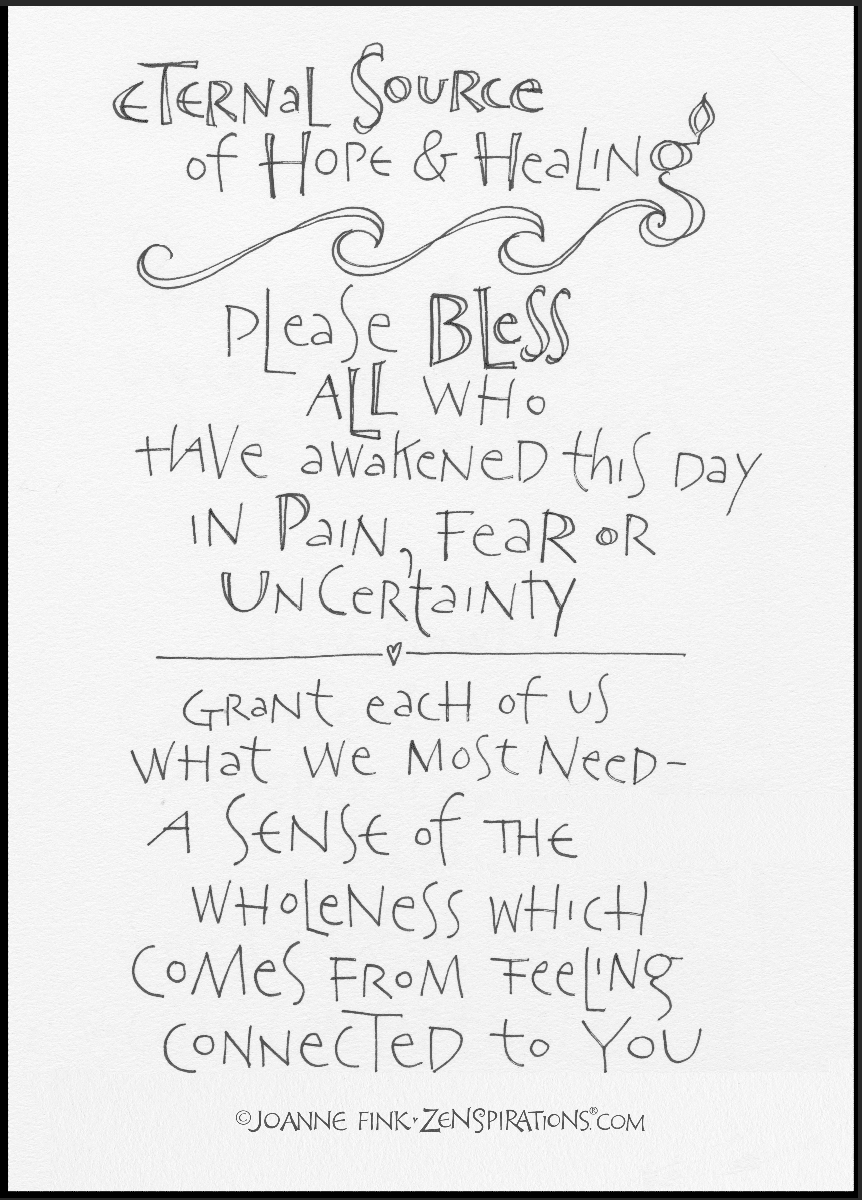 ETERNAL SOURCE
of HOPE & HeaLING
PLeaSe BLeSS
ALL WHo
HAVe awaKeNeD thiS Day
IN PaIN, FeaR oR
UNCeRtaINTY
GRaNt eacH of uS
WHat We MoSt NeeD-
A SENSE of THE
WHoLeNeSS WHICH
CoMeS FRoM FeeLING
CoNNeCTeD to YoU
©JOANNE FINK·ZENSPIRATIONS®.COM